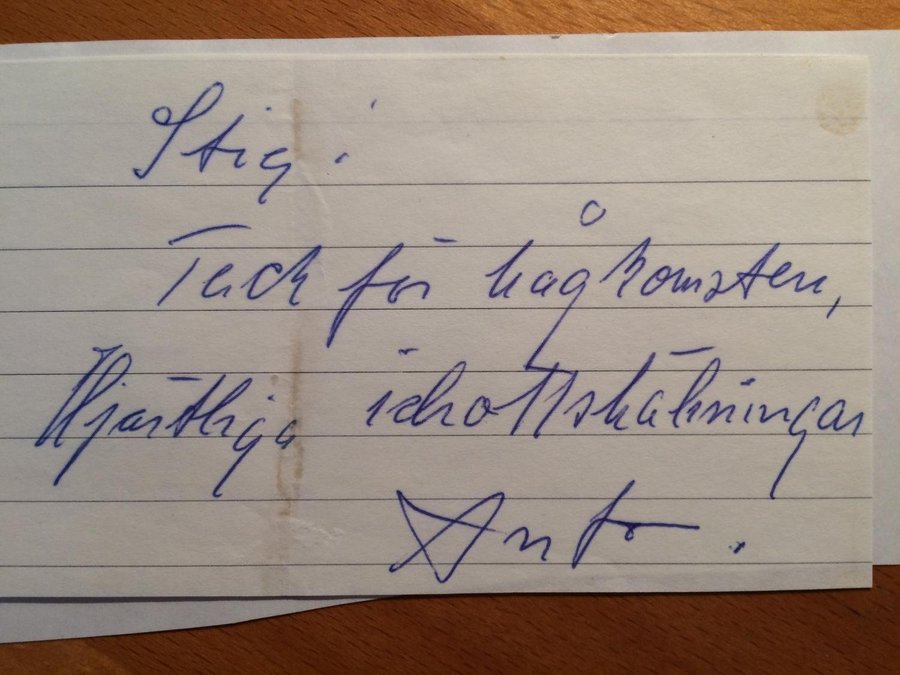 Stig!
Tack för hågkomsten,
Hjärtliga idrottshälsningar
Anto.